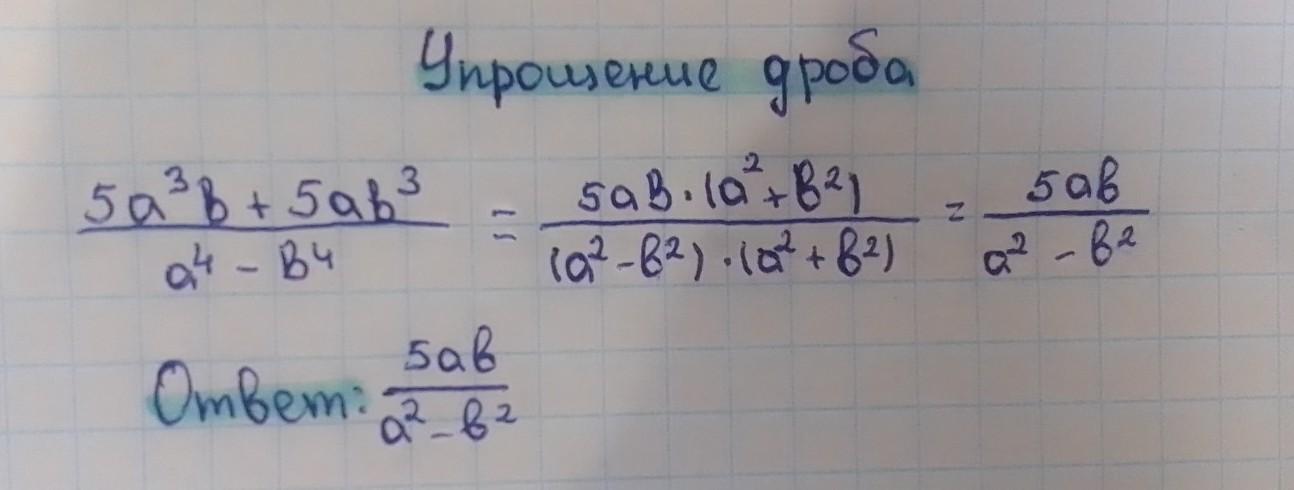 Упрощение дроба
5a³b + 5ab³ / a⁴ - b⁴ = 5ab·(a²+b²) / (a²-b²)·(a²+b²) = 5ab / a² - b²
Ответ: 5ab / a² - b²